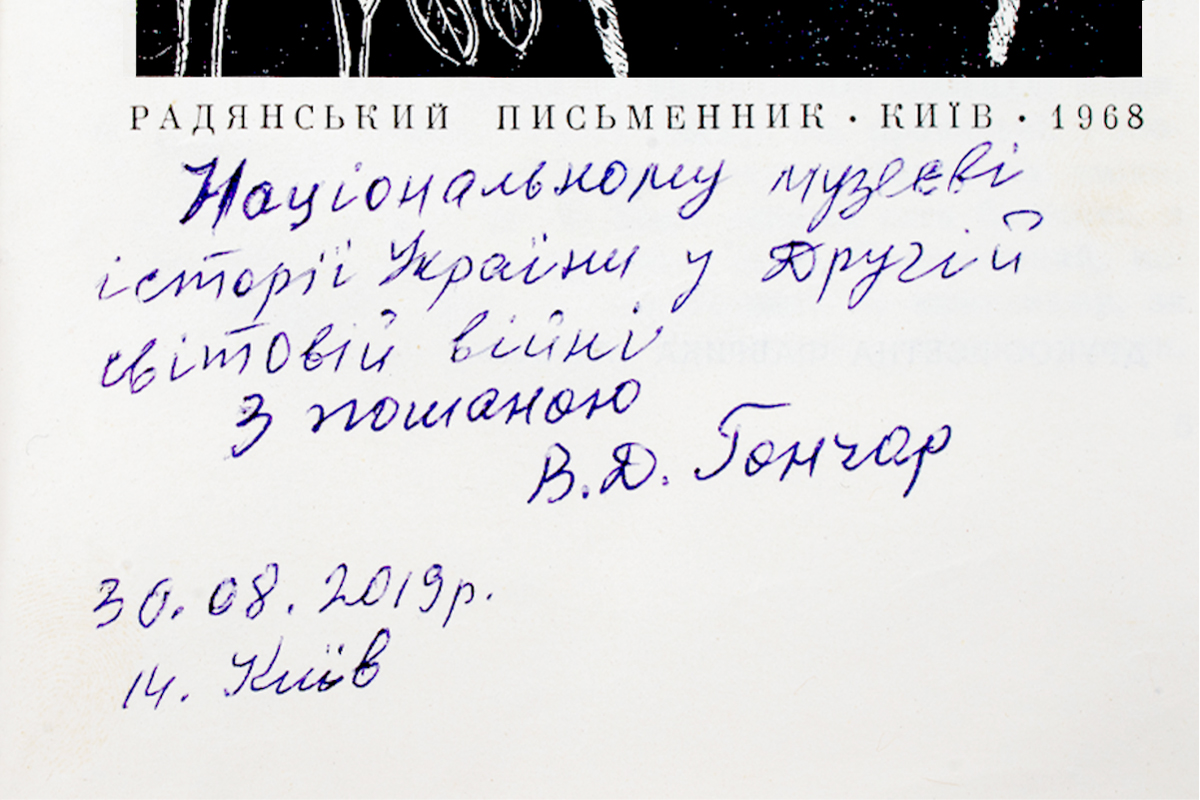 РАДЯНСЬКИЙ ПИСЬМЕННИК · КИЇВ · 1968
Національному музеєві
історії України у Другій
світовій війні
З пошаною
В.Д. Гончар
30.08.2019р.
14. Київ